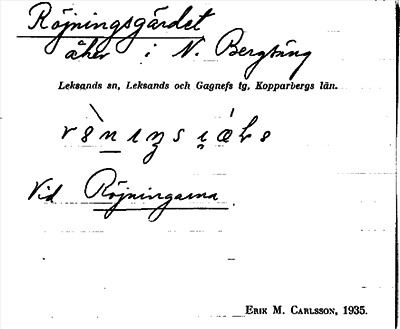 Röjningsgärdet
åker i N. Bergsäng
Leksands sn, Leksands och Gagnefs tg, Kopparbergs län.
Vid Röjningarna
ERIK M. CARLSSON, 1935.